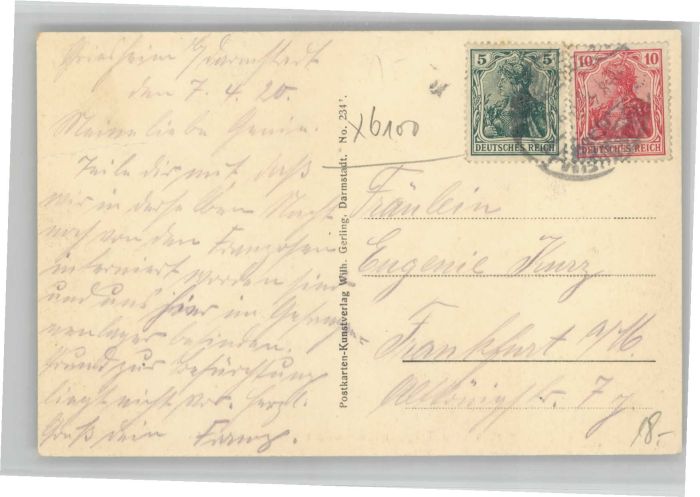 Griesheim b/Darmstadt
den 7. 4. 20.
Meine liebe Genie.
Teile dir mit daß
wir in derselben Nacht
noch von den Franzosen
interniert worden sind
und uns hier im Gefang-
enenlager befinden.
Grund zur Befürchtung
liegt nicht vor. Herzl.
Gruß dein Franz.
Postkarten-Kunstverlag Wilh. Gerling, Darmstadt. No. 234
x6100
5 5
DEUTSCHES REICH
10 10
DEUTSCHES REICH
Fräulein
Eugenie Kurz
Frankfurt a/M.
7
18.-